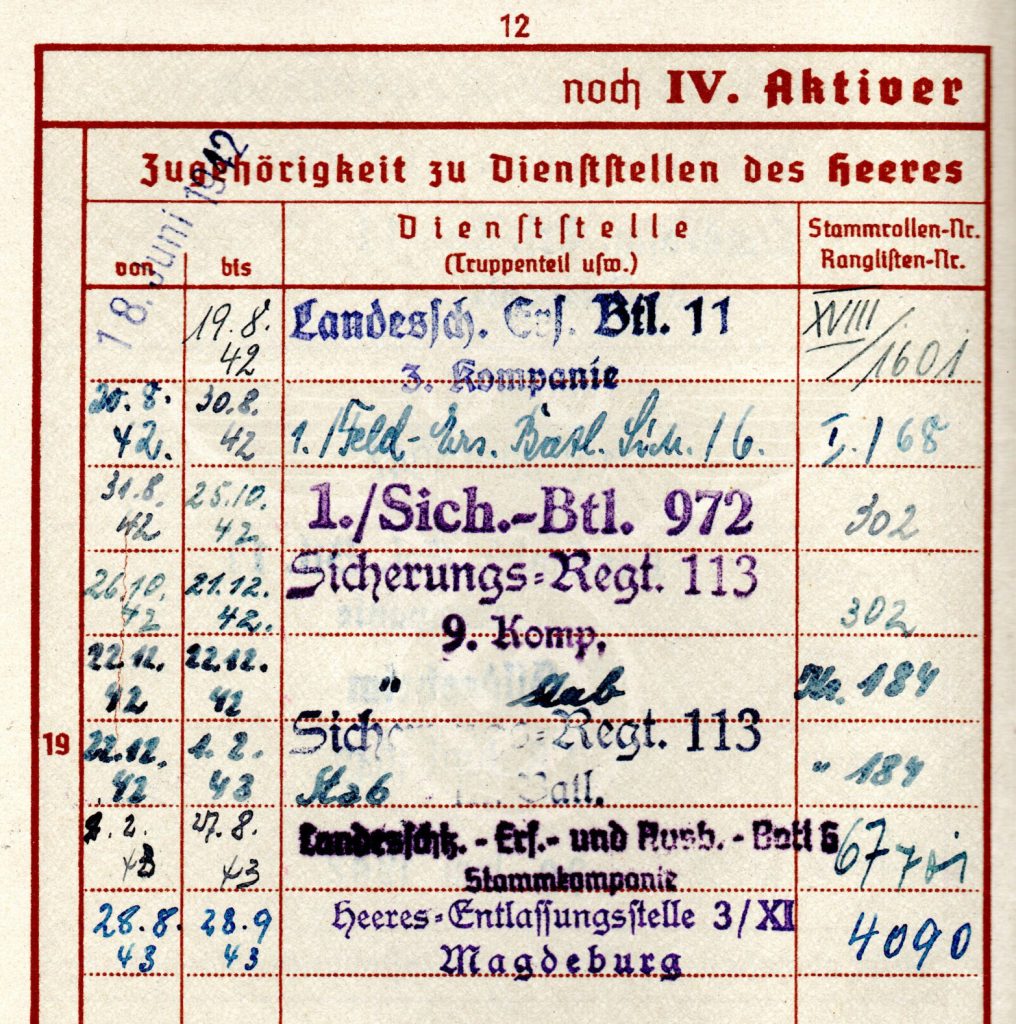 12
noch IV. Aktiver
Zugehörigkeit zu Dienststellen des Heeres
von bis
Dienststelle
(Truppenteil usw.)
Stammrollen-Nr.
Ranglisten-Nr.
18. Juni 1942
19.8. Landessch. Ers. Btl. 11 XVIII/1601
42 3. Kompanie
20.8. 30.8.
42. 42 1./Feld-Ers. Batl. Sich. /6. I./68
31.8. 25.10. 1./Sich.-Btl. 972 302
42 42
26.10. 21.12. Sicherungs-Regt. 113 302
42 42. 9. Komp.
22.12. 22.12.
42 42 " Stab 184
19
22.12. 1.2. Sicherungs-Regt. 113 " 184
42 43 Stab Batl.
2. 27.8. Landesschtz.-Ers.- und Ausb.-Batl 6 67
43 43 Stammkompanie
28.8. 28.9 Heeres-Entlassungsstelle 3/XI 4090
43 43 Magdeburg